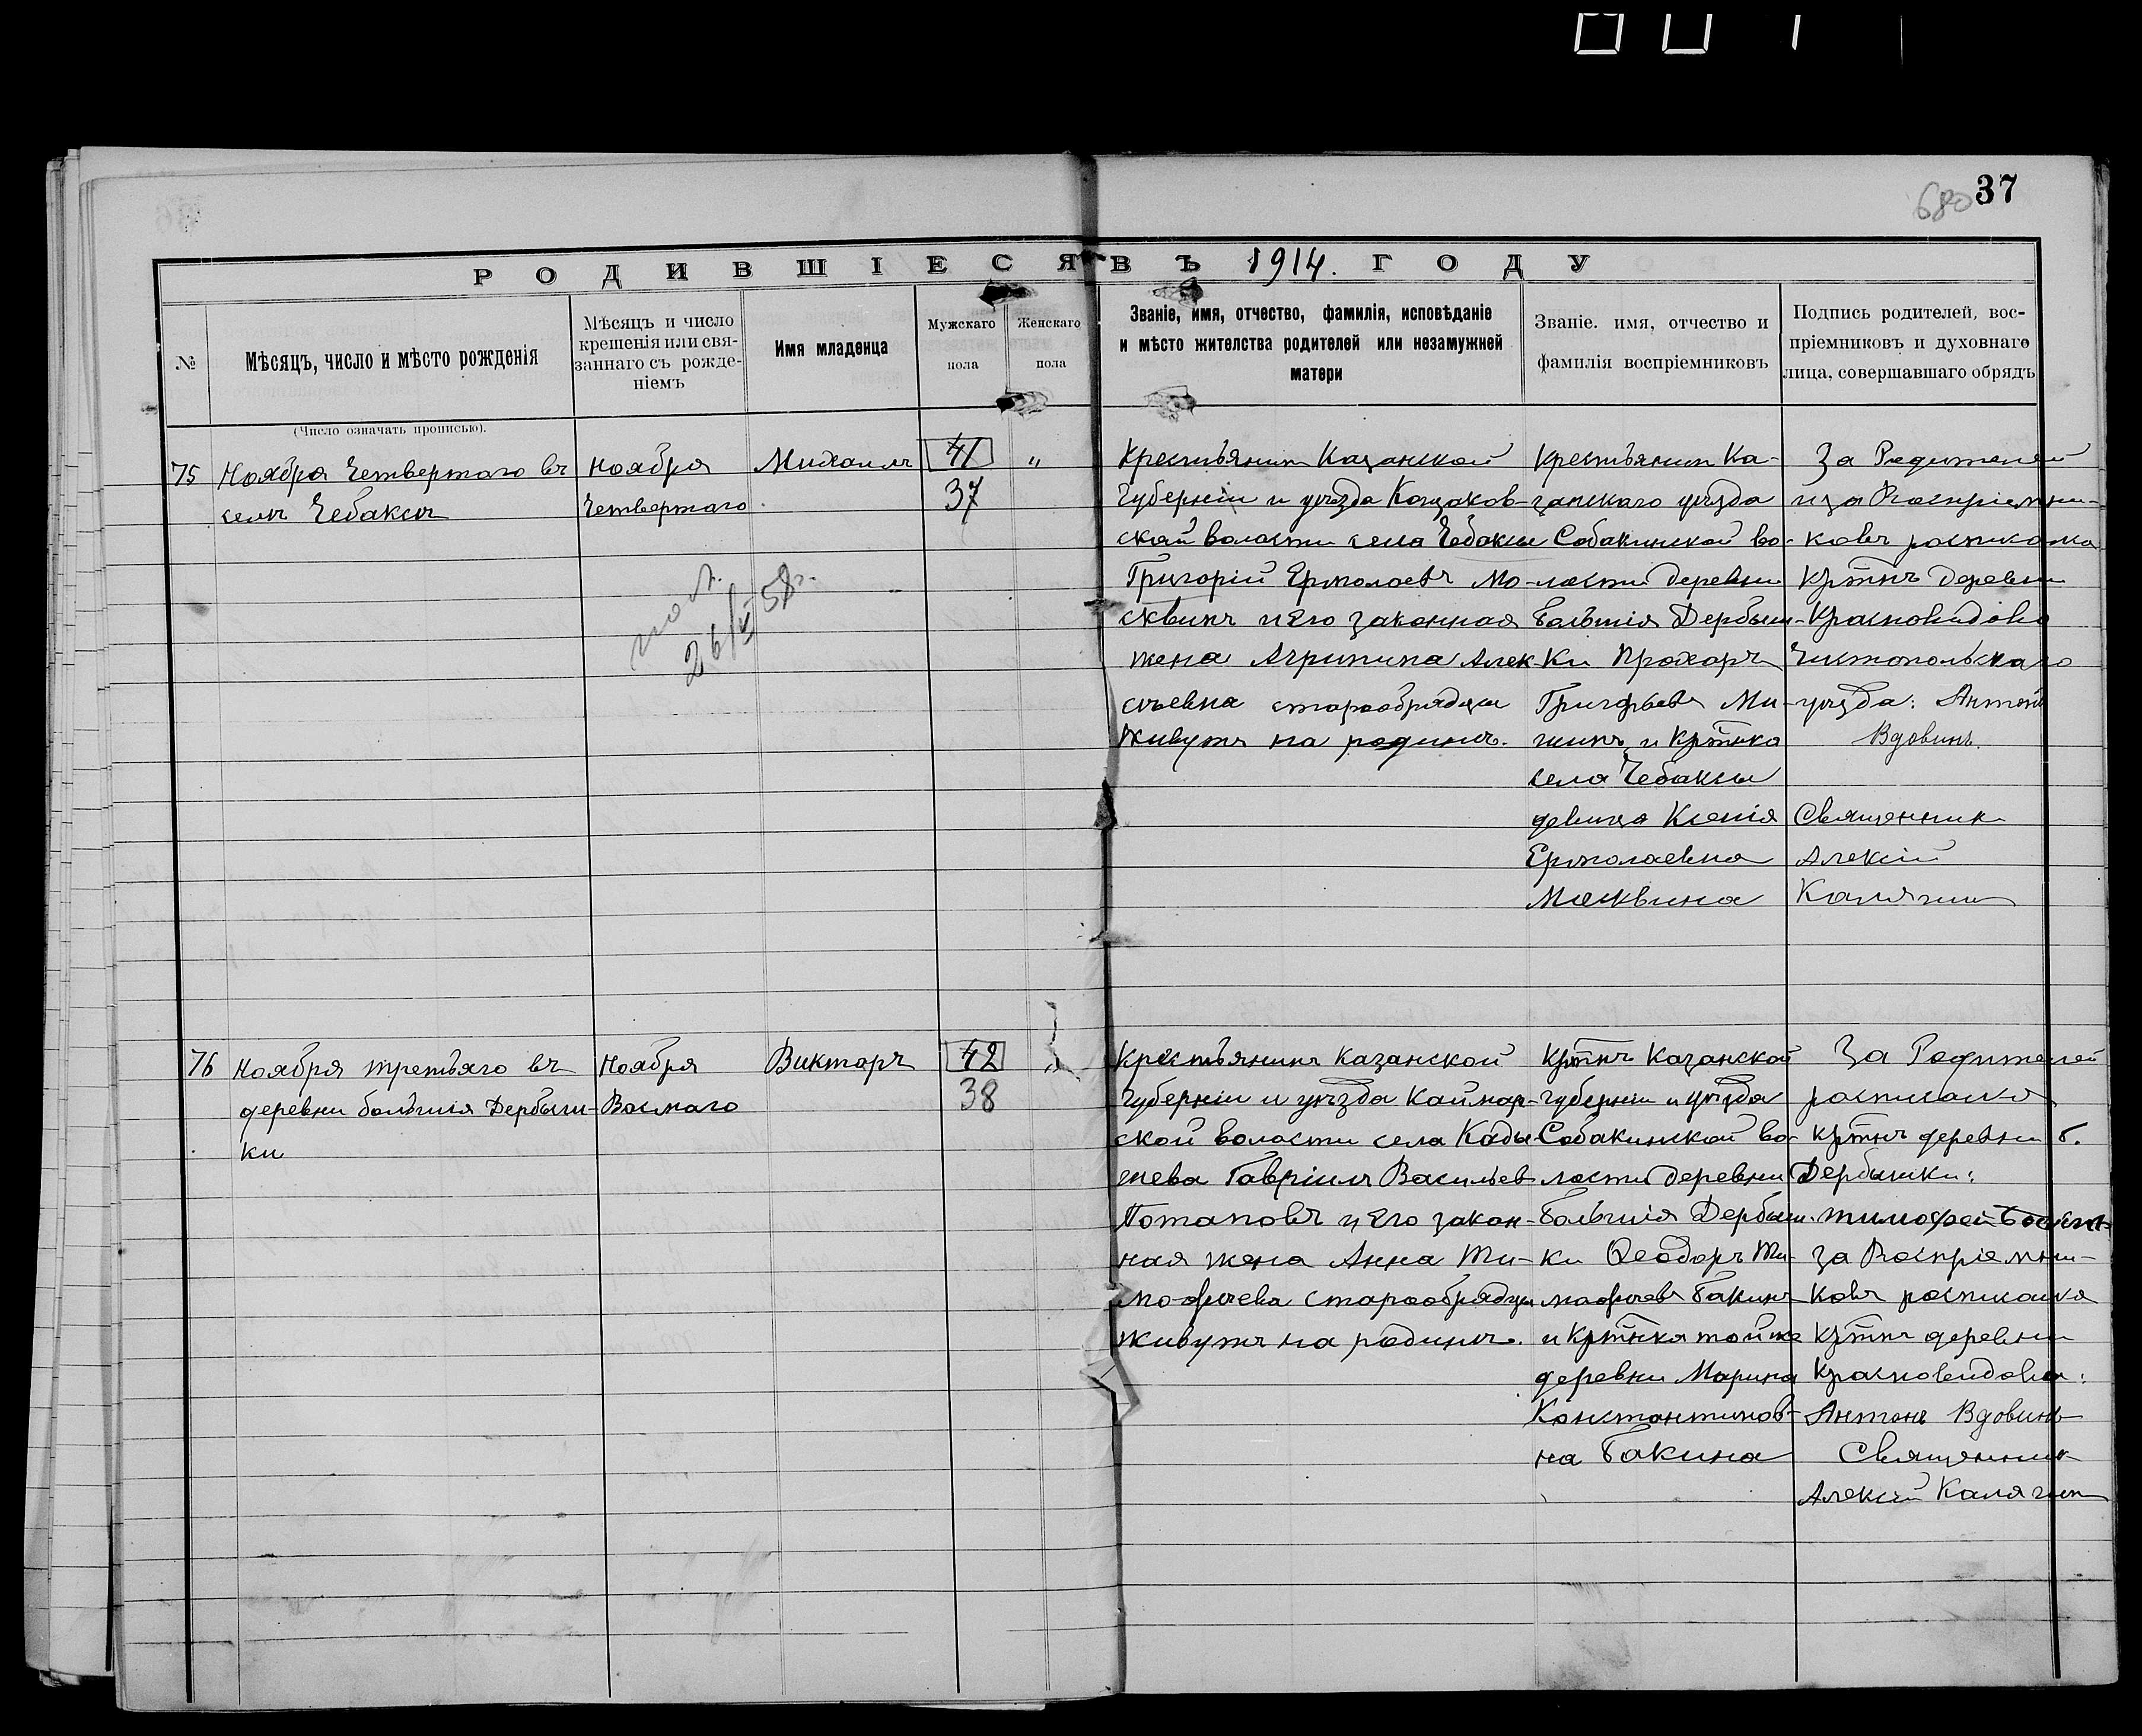 680 37
РОДИВШІЕСЯ ВЪ 1914. ГОДУ
№
Мѣсяцъ, число и мѣсто рожденія
Мѣсяцъ и число
крещенія или свя-
заннаго съ рожде-
ніемъ
Имя младенца
Мужскаго
пола
Женскаго
пола
Званіе, имя, отчество, фамилія, исповѣданіе
и мѣсто жителства родителей или незамужней
матери
Званіе. имя, отчество и
фамилія воспріемниковъ
Подпись родителей, вос-
пріемниковъ и духовнаго
лица, совершавшаго обрядъ
(Число означать прописью).
75
Ноября Четвертаго въ
селѣ Чебаксѣ
Ноября
Четвертаго
Михаилъ
41
37
"
26/V 58г.
Крестьянинъ Казанской
Губерніи и уѣзда Кощаков-
ской волости села Чебаксы
Григорій Ермолаевъ Мо-
сквинъ и Его законная
жена Агрипина Алек-
сѣевна старообрядцы
Живутъ на родинѣ.
Крестьянин Ка-
занскаго уѣзда
Собакинской во-
лости деревни
Большія Дербыш-
ки Прохоръ
Григорьевъ Ми-
шинъ и Крт̃нка
села Чебаксы
девица Ксенія
Ермолаевна
Москвина
За Родителей
и за Воспріемни-
ковъ росписался
Крт̃нъ деревни
Красновидова
Чистопольскаго
уѣзда: Антонъ
Вдовинъ.
Священник
Алексій
Калягин
76
Ноября третьяго въ
деревни большія Дербыш-
ки
Ноября
Восмаго
Викторъ
42
38
Крестьянинъ Казанской
Губерніи и уѣзда Каймар-
ской волости села Кады-
шева Гавріилъ Васильев
Потаповъ и Его закон-
ная жена Анна Ти-
мофѣева старообрядцы
живутъ на родинѣ.
Крт̃нъ Казанской
Губерніи и уѣзда
Собакинской во-
лости деревни
Большія Дербыш-
ки Ѳеодоръ Ти-
мофѣевъ Бакинъ
и Крт̃нка той же
деревни Марина
Константинов-
на Бакина
За Родителей
росписался
крт̃нъ деревни б.
Дербышки:
Тимофей
За Воспріемни-
ковъ росписался
Крт̃нъ деревни
Красновидова:
Антонъ Вдовинъ
Священник
Алексій Калягин